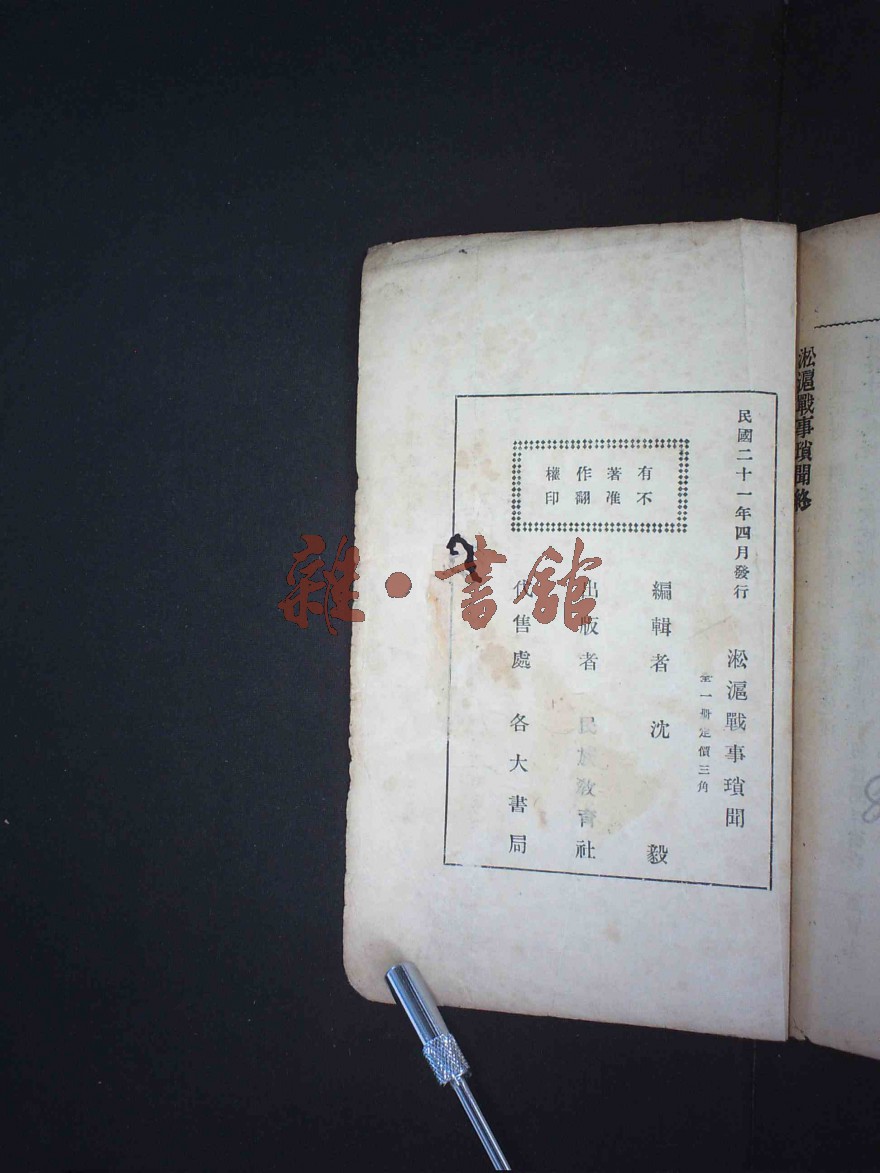 淞滬戰事瑣聞終
民國二十一年四月發行
淞滬戰事瑣聞
全一册定價三角
有著作權
不准翻印
編輯者 沈毅
出版者 民族教育社
代售處 各大書局
雜·書館